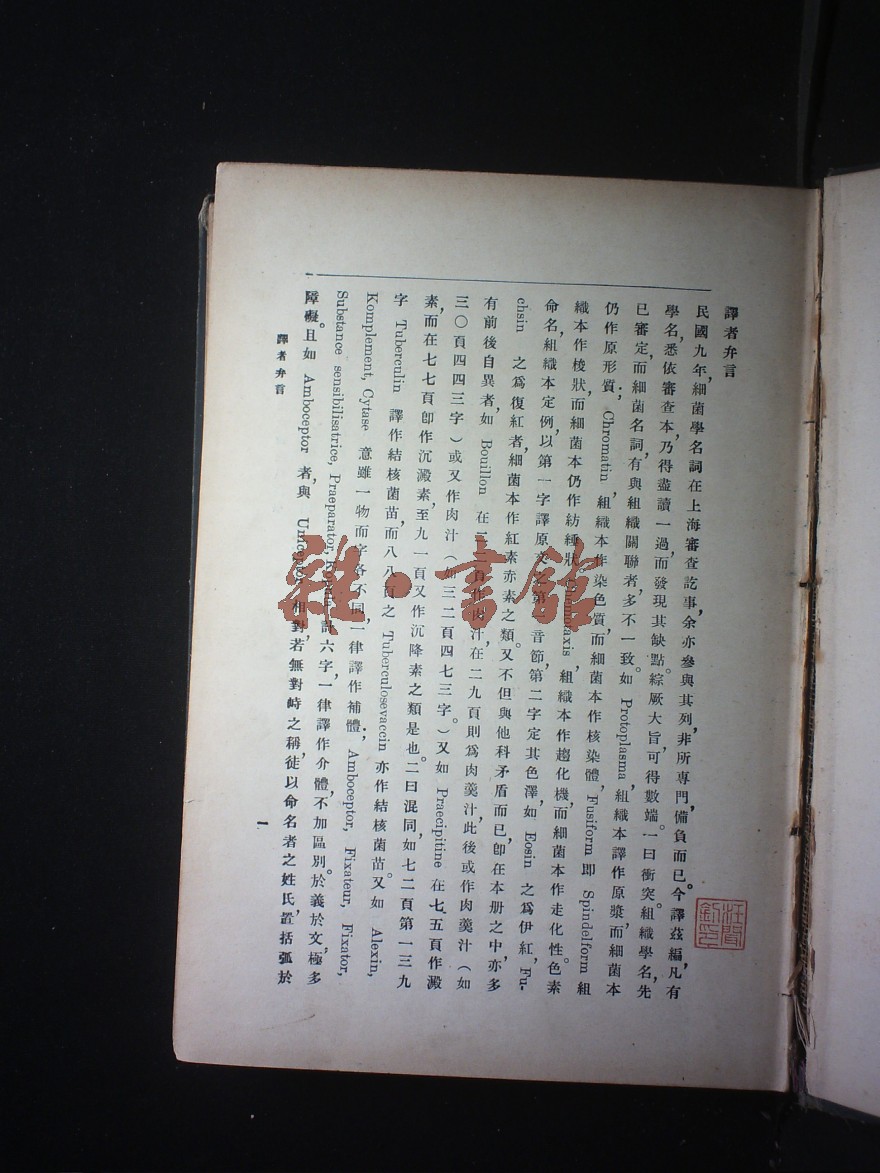 譯者弁言
民國九年，細菌學名詞在上海審查訖事，余亦參與其列，非所專門，備員而已。今譯茲編，凡有
學名，悉依審查本，乃得盡讀一過，而發現其缺點。綜厥大旨，可得數端。一曰衝突。組織學名，先
已審定，而細菌名詞，有與組織關聯者，多不一致。如 Protoplasma，組織本譯作原漿，而細菌本
仍作原形質，Chromatin，組織本作染色質，而細菌本作核染體，Fusiform 即 Spindelform 組
織本作梭狀，而細菌本仍作紡綞狀。組織本作趨化機，而細菌本作走化性。色素
命名，組織本定例，以第一字譯原文之第一音節，第二字定其色澤，如 Eosin 之爲伊紅，Fu-
chsin 之爲復紅者，細菌本作紅素赤素之類。又不但與他科矛盾而已，即在本册之中，亦多
有前後自異者，如 Bouillon 在頁作肉汁，在二九頁則爲肉羹汁，此後或作肉羹汁（如
三〇頁四四三字）或又作肉汁（如三二頁四七三字。）又如 Praecipitine 在七五頁作澱
素，而在七七頁卽作沉澱素，至九一頁又作沉降素之類是也。二曰混同。如七二頁第一三九
字 Tuberculin 譯作結核菌苗，而八八頁之 Tuberculosevaccin 亦作結核菌苗。又如 Alexin,
Komplement, Cytase 意雖一物而字各不同，一律譯作補體，Amboceptor, Fixateur, Fixator,
Substance sensibilisatrice, Praeparator, 計六字，一律譯作介體，不加區別。於義於文，極多
障礙。且如 Amboceptor 者，與 相對，若無對峙之稱，徒以命名者之姓氏，置括弧於
譯者弁言
一
汪閏
雜·書館